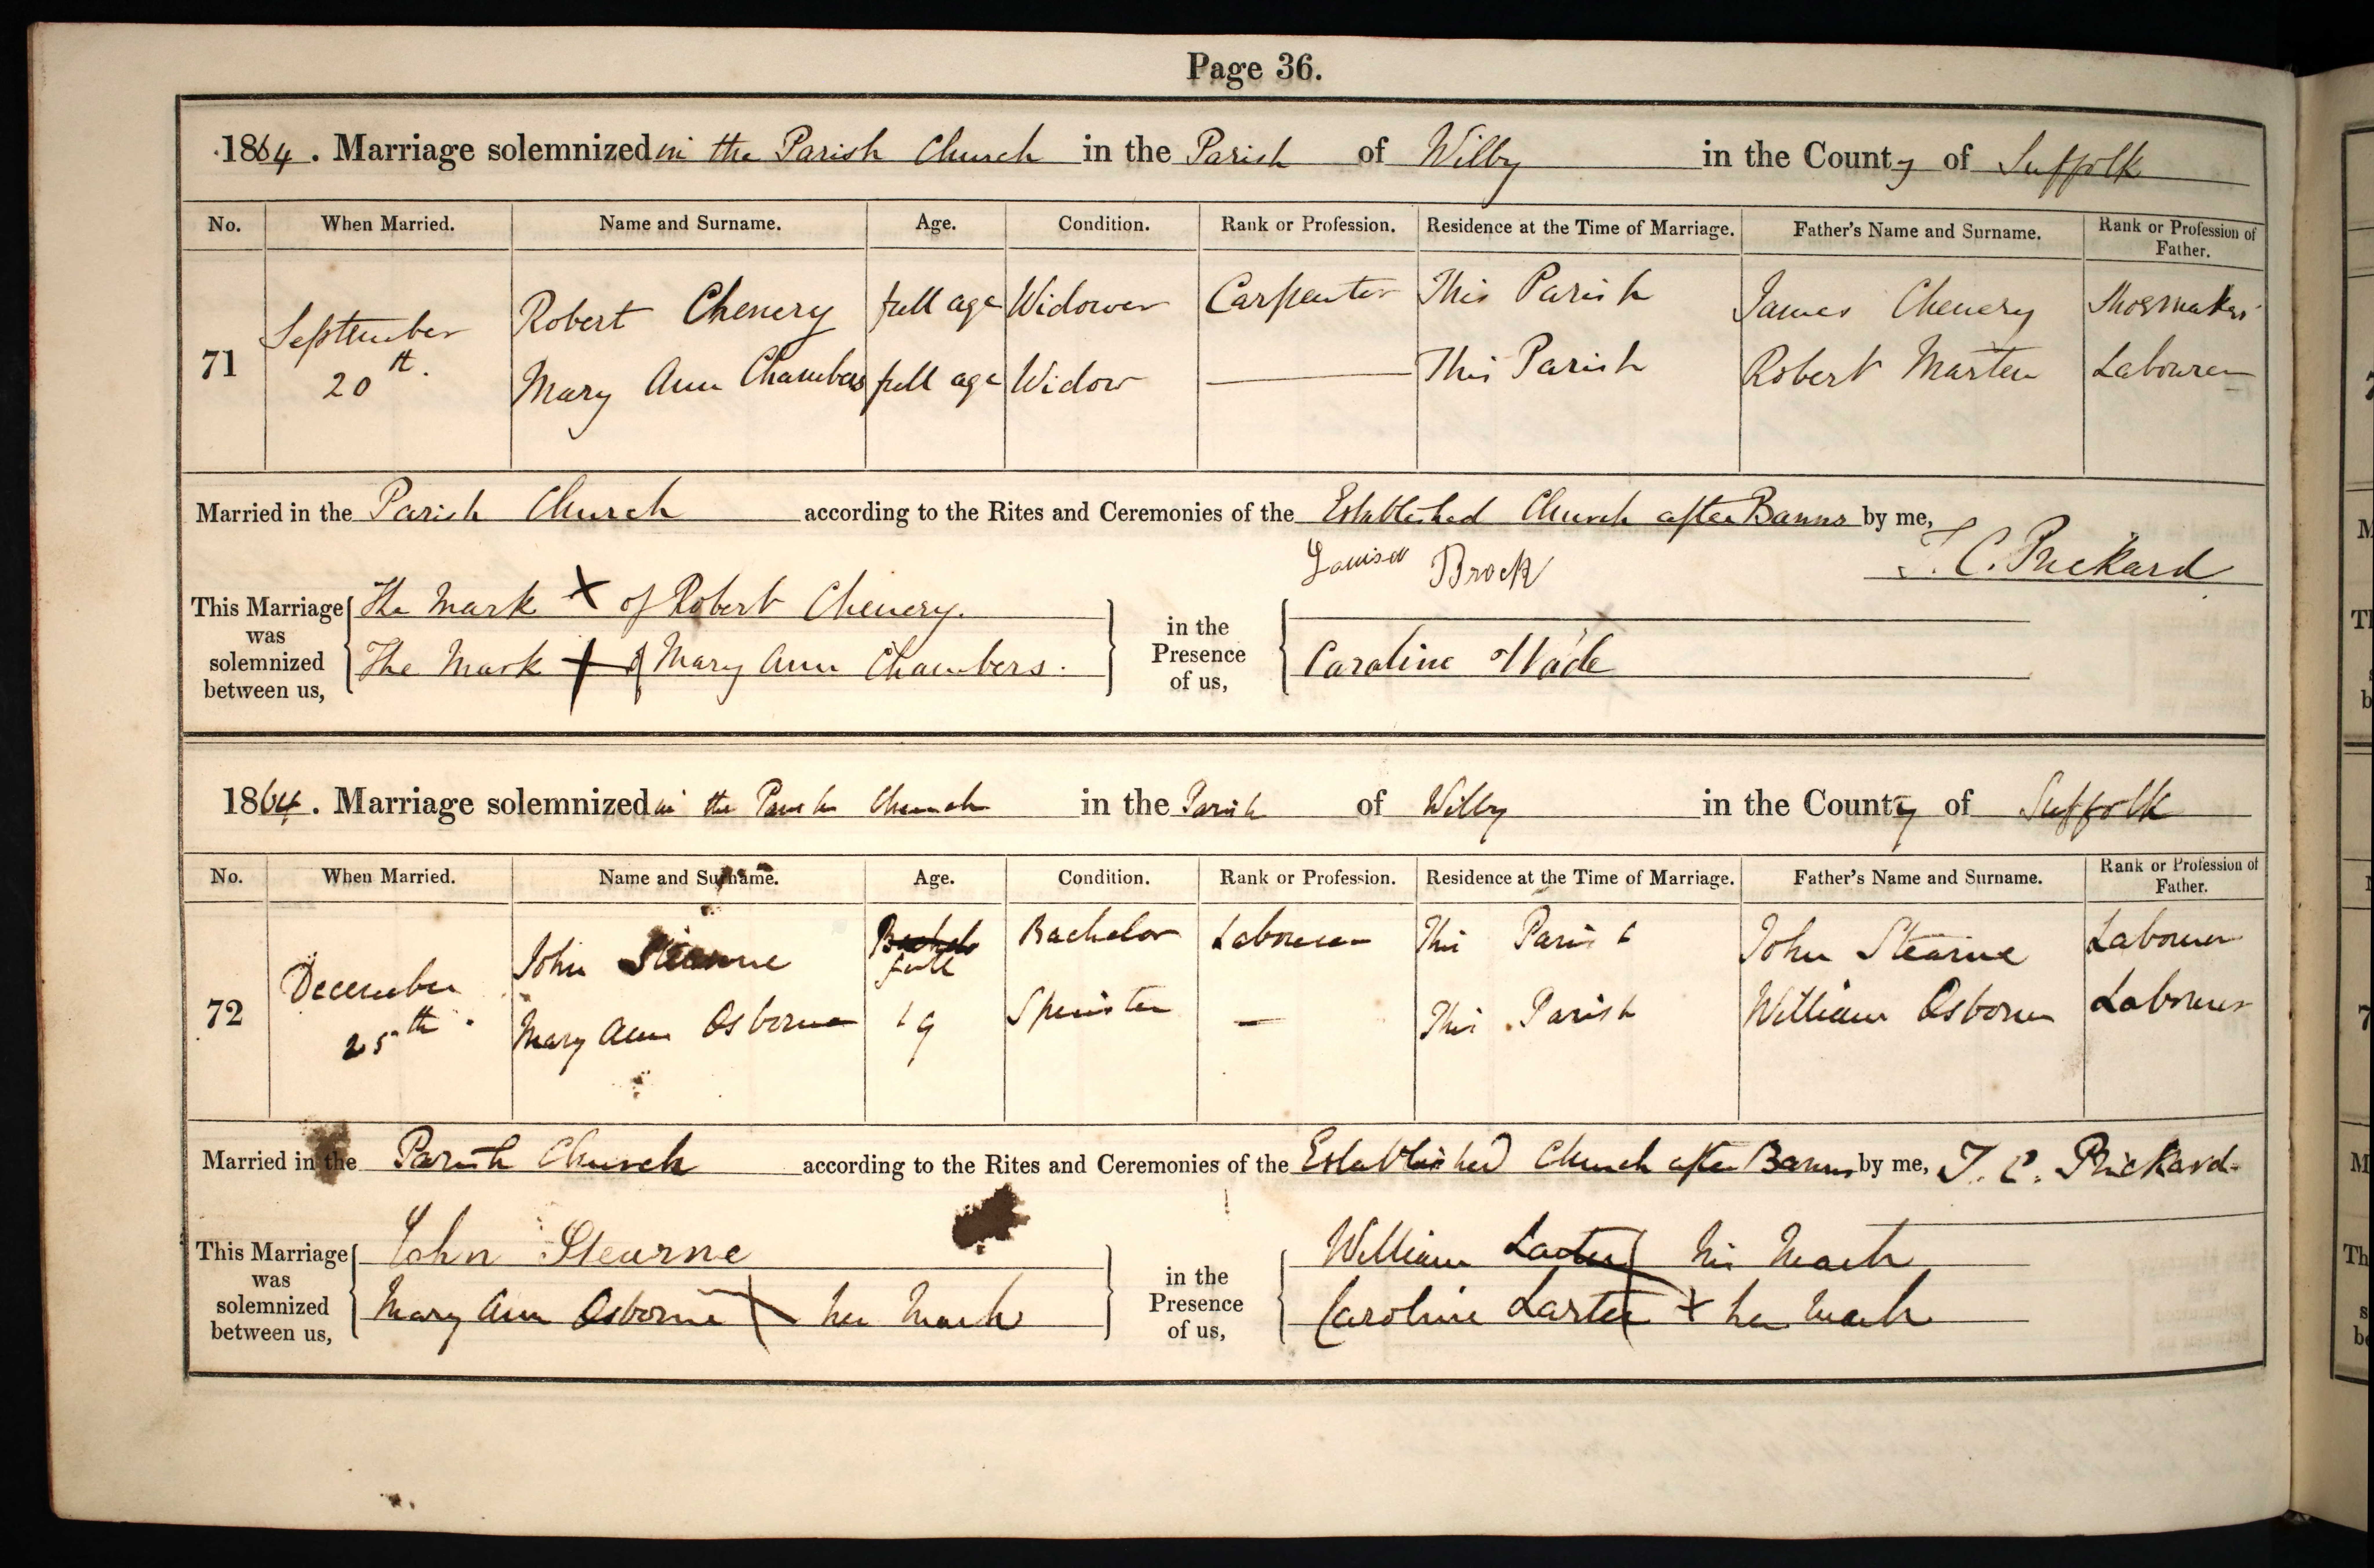 Page 36.
1864. Marriage solemnized in the Parish Church in the Parish of Wilby in the County of Suffolk
No. When Married. Name and Surname. Age. Condition. Rank or Profession. Residence at the Time of Marriage. Father's Name and Surname. Rank or Profession of Father.
71 September 20th. Robert Chenery full age Widower Carpenter This Parish James Chenery Shoemaker
Mary Ann Chambers full age Widow — This Parish Robert Marten Labourer
Married in the Parish Church according to the Rites and Ceremonies of the Established Church after Banns by me,
Louisa Brock J. C. Prickard
This Marriage was solemnized between us, The Mark X of Robert Chenery. in the Presence of us,
The Mark + of Mary Ann Chambers. Caroline Wade
1864. Marriage solemnized in the Parish Church in the Parish of Wilby in the County of Suffolk
No. When Married. Name and Surname. Age. Condition. Rank or Profession. Residence at the Time of Marriage. Father's Name and Surname. Rank or Profession of Father.
72 December 25th. John Stearne full Bachelor Labourer This Parish John Stearne Labourer
Mary Ann Osborne 19 Spinster — This Parish William Osborne Labourer
Married in the Parish Church according to the Rites and Ceremonies of the Established Church after Banns by me, J. C. Prickard
This Marriage was solemnized between us, John Stearne in the Presence of us, William Larter his mark
Mary Ann Osborne X her mark Caroline Larter X her mark